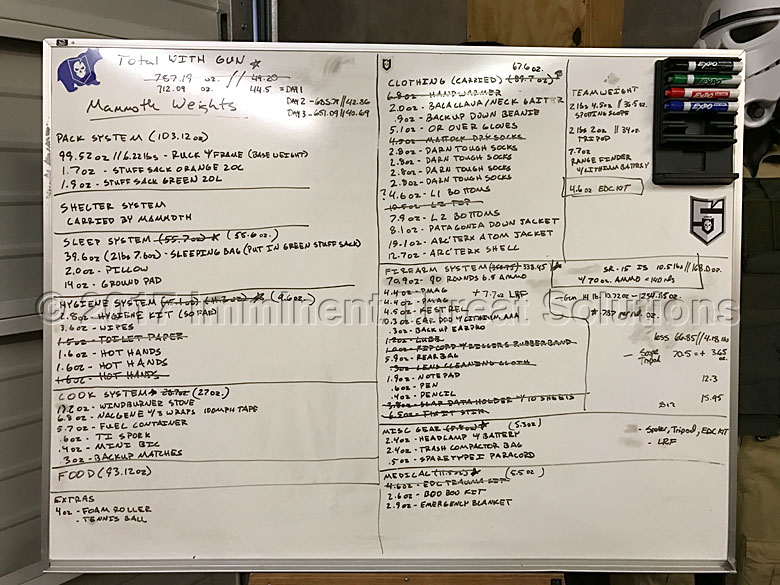 Total WITH GUN *
787.19 oz. // 49.20
712.09 oz 44.5 = DAY 1
Mammoth Weights
DAY 2 - 685.79 // 42.86
DAY 3 - 651.09 // 40.69
PACK SYSTEM (103.12oz)
99.52oz // 6.22lbs - RUCK & FRAME (BASE WEIGHT)
1.7oz - STUFF SACK ORANGE 20L
1.9oz - STUFF SACK GREEN 20L
SHELTER SYSTEM
CARRIED BY MAMMOTH
SLEEP SYSTEM (55.7oz) * (55.6oz)
39.6oz (2lbs 7.6oz) - SLEEPING BAG (PUT IN GREEN STUFF SACK)
2.0oz - PILLOW
14oz - GROUND PAD
HYGIENE SYSTEM (9.6oz)
2.8oz HYGIENE KIT (50 PAD)
3.6oz - WIPES
1.5oz - TOILET PAPER
1.6oz - HOT HANDS
1.6oz - HOT HANDS
1.6oz - HOT HANDS
COOK SYSTEM (27oz)
WINDBURNER STOVE
6.8oz - NALGENE W/3 WRAPS 100MPH TAPE
5.7oz - FUEL CONTAINER
.6oz - TI SPORK
.4oz - MINI BIC
.3oz - BACKUP MATCHES
FOOD (93.12oz)
EXTRAS
4oz - FOAM ROLLER
- TENNIS BALL
67.6oz
CLOTHING (CARRIED) (89.7oz)
6.8oz - HANDWARMER
2.0oz - BALACLAVA/NECK GAITER
.9oz - BACKUP DOWN BEANIE
5.1oz - OR OVER GLOVES
4.9oz - MATTOCK DRY SOCKS
2.8oz - DARN TOUGH SOCKS
2.8oz - DARN TOUGH SOCKS
2.8oz - DARN TOUGH SOCKS
2.8oz - DARN TOUGH SOCKS
? 4.6oz - L1 BOTTOMS
10.5oz - L2 TOP
7.9oz - L2 BOTTOMS
8.1oz - PATAGONIA DOWN JACKET
19.1oz - ARC'TERX ATOM JACKET
12.7oz - ARC'TERX SHELL
FIREARM SYSTEM 338.45
70.9oz - 90 ROUNDS 6.5 AMMO
4.4oz - PMAG
4.4oz - PMAG + 7.7oz LRF
4.5oz - KESTREL
10.3oz - EAR PRO W/LITHIUM AAA
.3oz - BACKUP EARPRO
1.2oz - LUBE
RIPCORD W/RIGGERS RUBBERBAND
5.9oz - REAR BAG
.3oz - LENS CLEANING CLOTH
1.9oz - NOTEPAD
.6oz - PEN
.4oz - PENCIL
3.8oz - SLAP DATA HOLDER W/10 SHEETS
6.5oz - FIX IT STIX
MISC GEAR (5.3oz)
2.4oz - HEADLAMP W/BATTERY
2.4oz - TRASH COMPACTOR BAG
.5oz - SPARE TYPE I PARACORD
MEDICAL (11.5oz) * (5.5oz)
4.6oz - EDC TRAUMA KIT
2.6oz - BOO BOO KIT
2.9oz - EMERGENCY BLANKET
TEAM WEIGHT
2lbs 4.5oz // 36.5oz
SPOTTING SCOPE
2lbs 2oz // 34oz
TRIPOD
7.7oz
RANGE FINDER
W/LITHIUM BATTERY
4.6oz EDC KIT
SR-15 IS 10.5lbs // 168.0oz
W/ 70oz. AMMO = 140rds
Gun 14 lb 10.72oz = 234.85oz
* 787 w/ rd. oz.
less 66.85 // 4.18 lbs
- Scope Tripod 70.5 = + 3.65 oz.
12.3
15.95
- Spotter, Tripod, EDC KIT
- LRF
EXPO
EXPO
EXPO
EXPO
© 2017 Imminent Threat Solutions